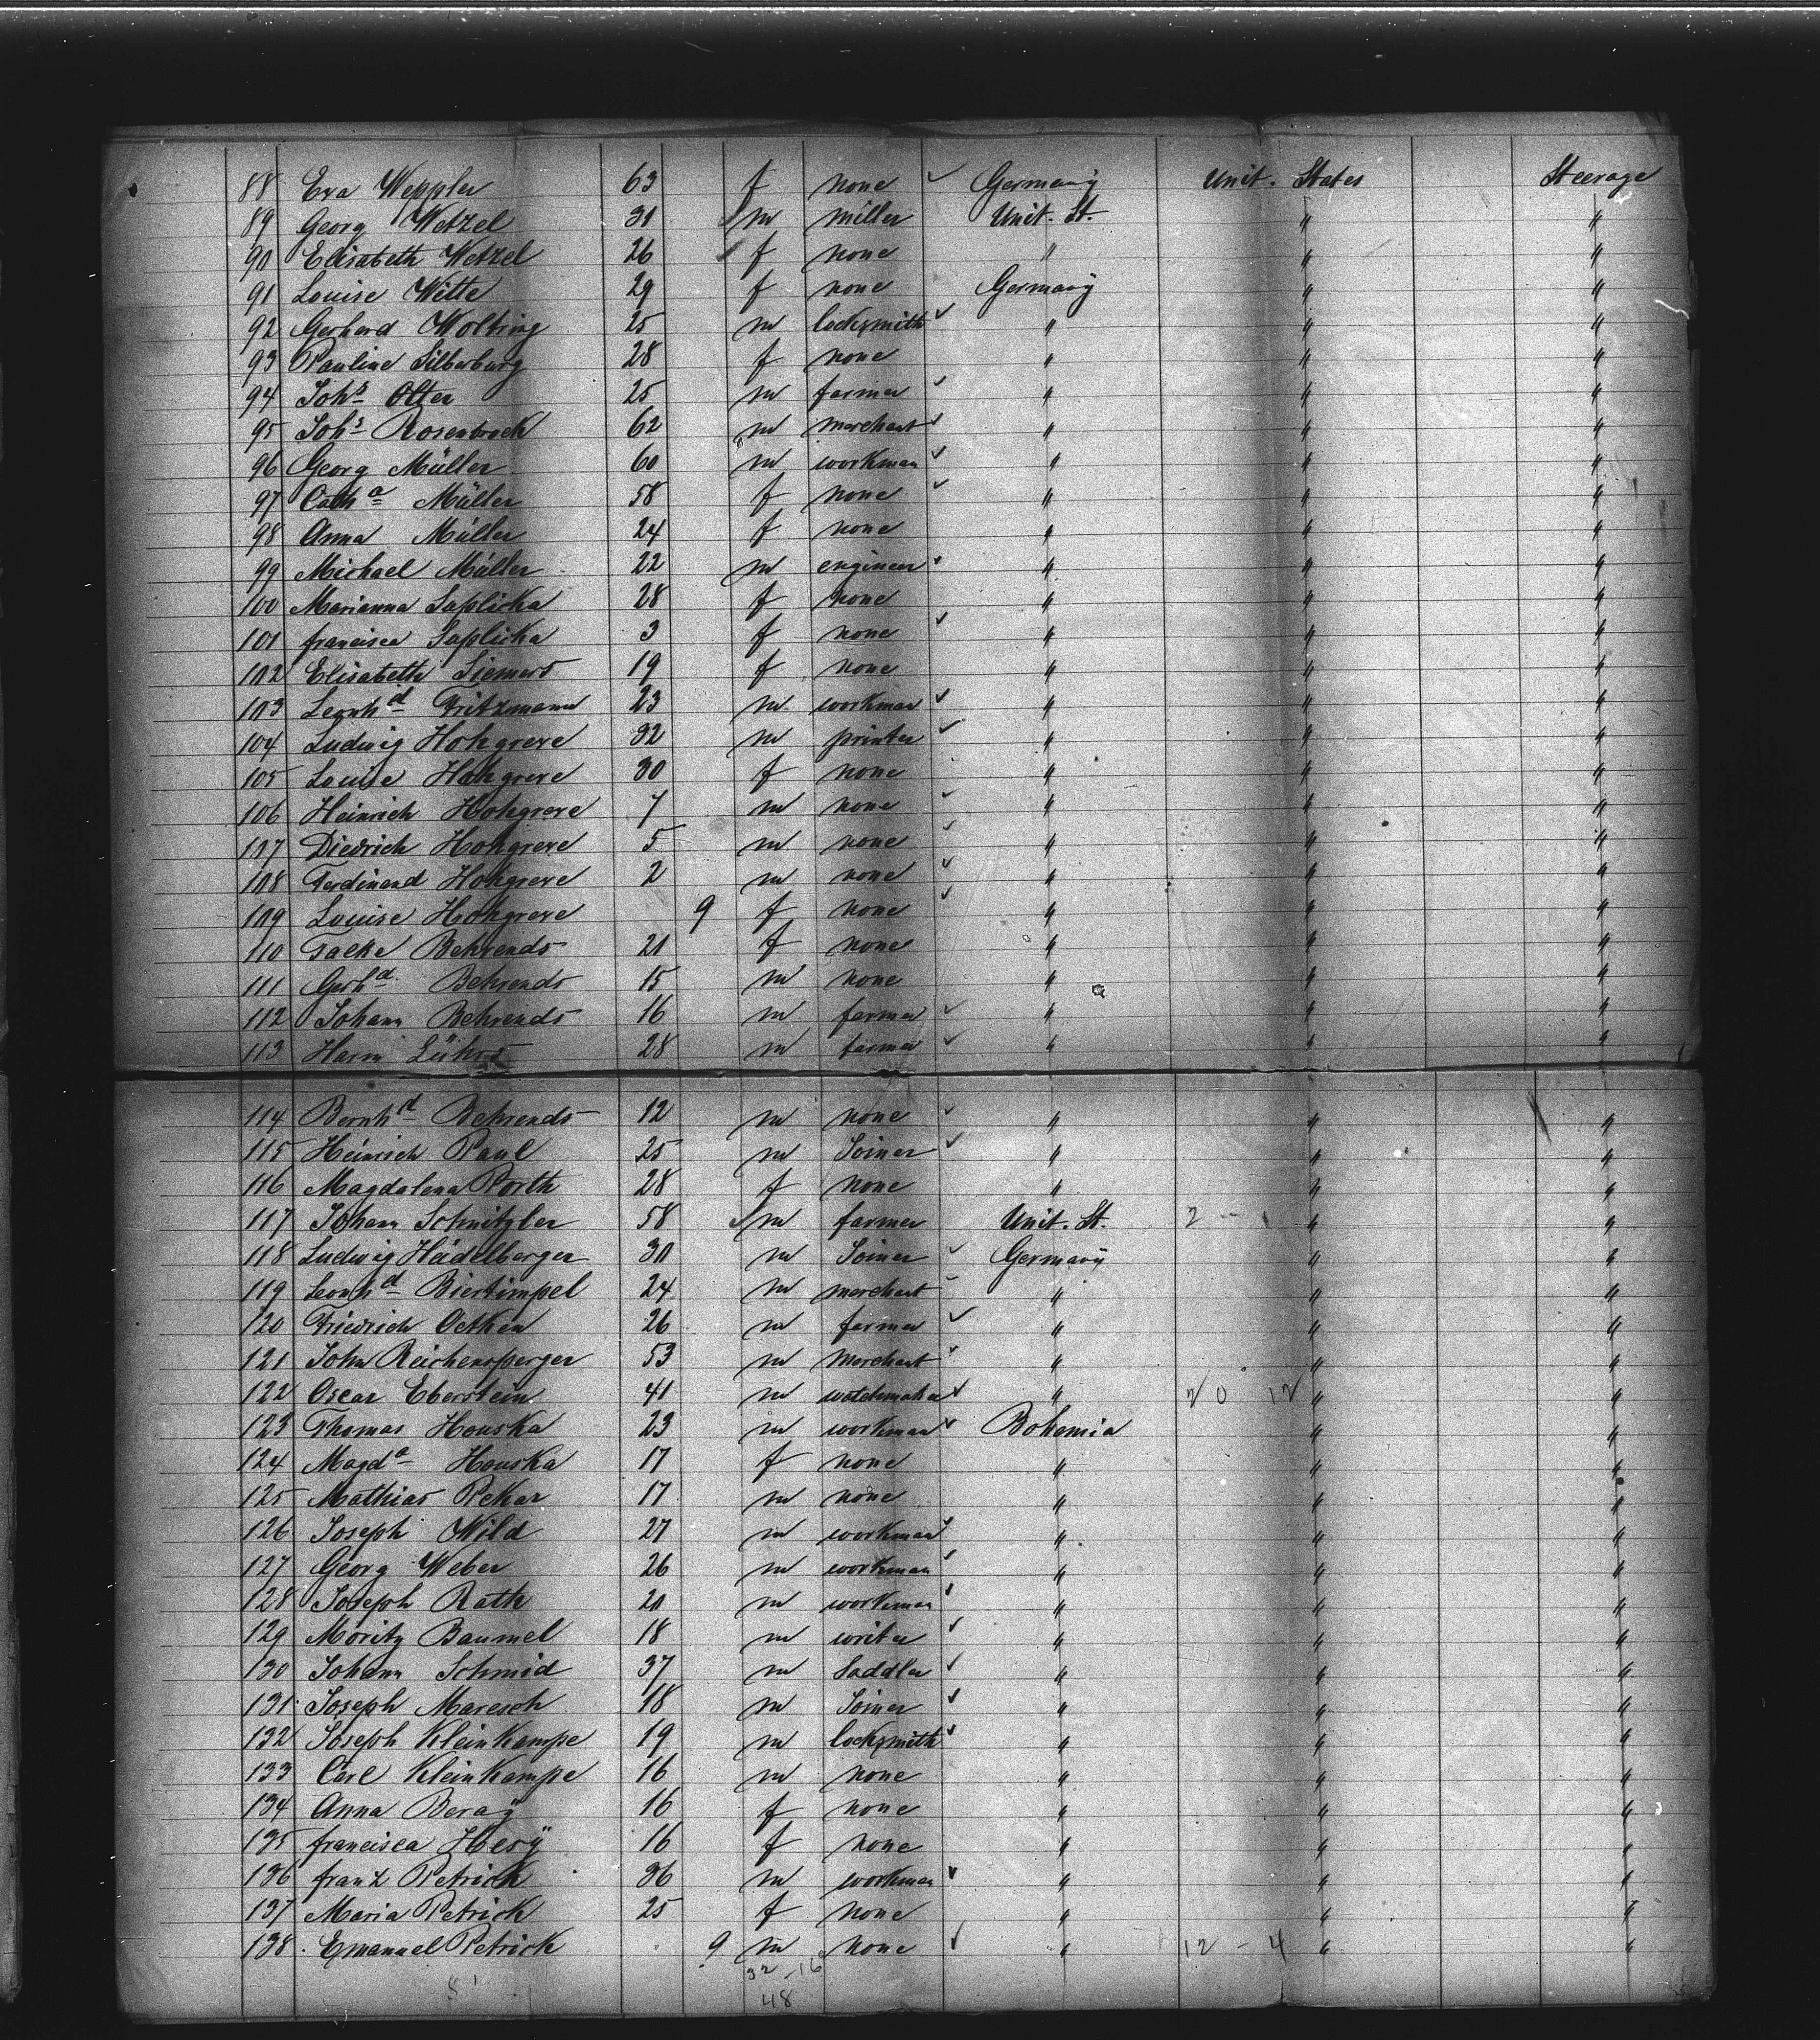 88 Eva Weppler 63 f none ✓ Germany Unit. States Steerage
89 Georg Wetzel 31 ✓ m miller Unit. St. " "
90 Elisabeth Wetzel 26 ✓ f none " " "
91 Louise Witte 29 f none Germany " "
92 Gerhard Woltring 25 m locksmith ✓ " " "
93 Pauline Silberburg 28 f none " " "
94 Johs Olter 25 m farmer ✓ " " "
95 Johs Rosenbrock 62 m merchant ✓ " " "
96 Georg Müller 60 m workman ✓ " " "
97 Catha Müller 58 f none ✓ " " "
98 Anna Müller 24 f none " " "
99 Michael Müller 22 m engineer ✓ " " "
100 Marianna Saplicka 28 f none " " "
101 francisca Saplicka 3 f none ✓ " " "
102 Elisabeth Siemers 19 f none " " "
103 Leonhd Fritzmann 23 m workman ✓ " " "
104 Ludwig Hohgreve 32 m printer ✓ " " "
105 Louise Hohgreve 30 f none " " "
106 Heinrich Hohgreve 7 m none ✓ " " "
107 Diedrich Hohgreve 5 m none ✓ " " "
108 Ferdinand Hohgreve 2 m none ✓ " " "
109 Louise Hohgreve 9 f none ✓ " " "
110 Taelke Behrends 21 f none " " "
111 Gerhd Behrends 15 m none " " "
112 Johann Behrends 16 m farmer ✓ " " "
113 Harm Lührs 28 m farmer ✓ " " "
114 Bernhd Behrends 12 m none ✓ " " "
115 Heinrich Paul 25 m Joiner ✓ " " "
116 Magdalena Porth 28 f none " " "
117 Johann Schnitzler 58 ✓ m farmer Unit. St. 2 - 1 " "
118 Ludwig Heidelberger 30 m Joiner ✓ Germany " "
119 Leonhd Biertimpel 24 m merchant ✓ " " "
120 Friedrich Oetken 26 m farmer ✓ " " "
121 John Reichensperger 53 m merchant ✓ " " "
122 Oscar Eberstein 41 m watchmaker ✓ " 20 12 " "
123 Thomas Houska 23 m workman ✓ Bohemia " "
124 Magda Houska 17 f none " " "
125 Mathias Pekar 17 m none " " "
126 Joseph Wild 27 m workman ✓ " " "
127 Georg Weber 26 m workman ✓ " " "
128 Joseph Rath 20 m workman ✓ " " "
129 Moritz Baumel 18 m writer ✓ " " "
130 Johann Schmid 37 m Saddler ✓ " " "
131 Joseph Maresch 18 m Joiner ✓ " " "
132 Joseph Kleinkampe 19 m locksmith ✓ " " "
133 Carl Kleinkampe 16 m none " " "
134 Anna Beraÿ 16 f none " " "
135 francisca Hesÿ 16 f none " " "
136 franz Petrick 36 m workman ✓ " " "
137 Maria Petrick 25 f none " " "
138 Emanuel Petrick 9 m none ✓ " 12 - 4 " "
32 - 16
48